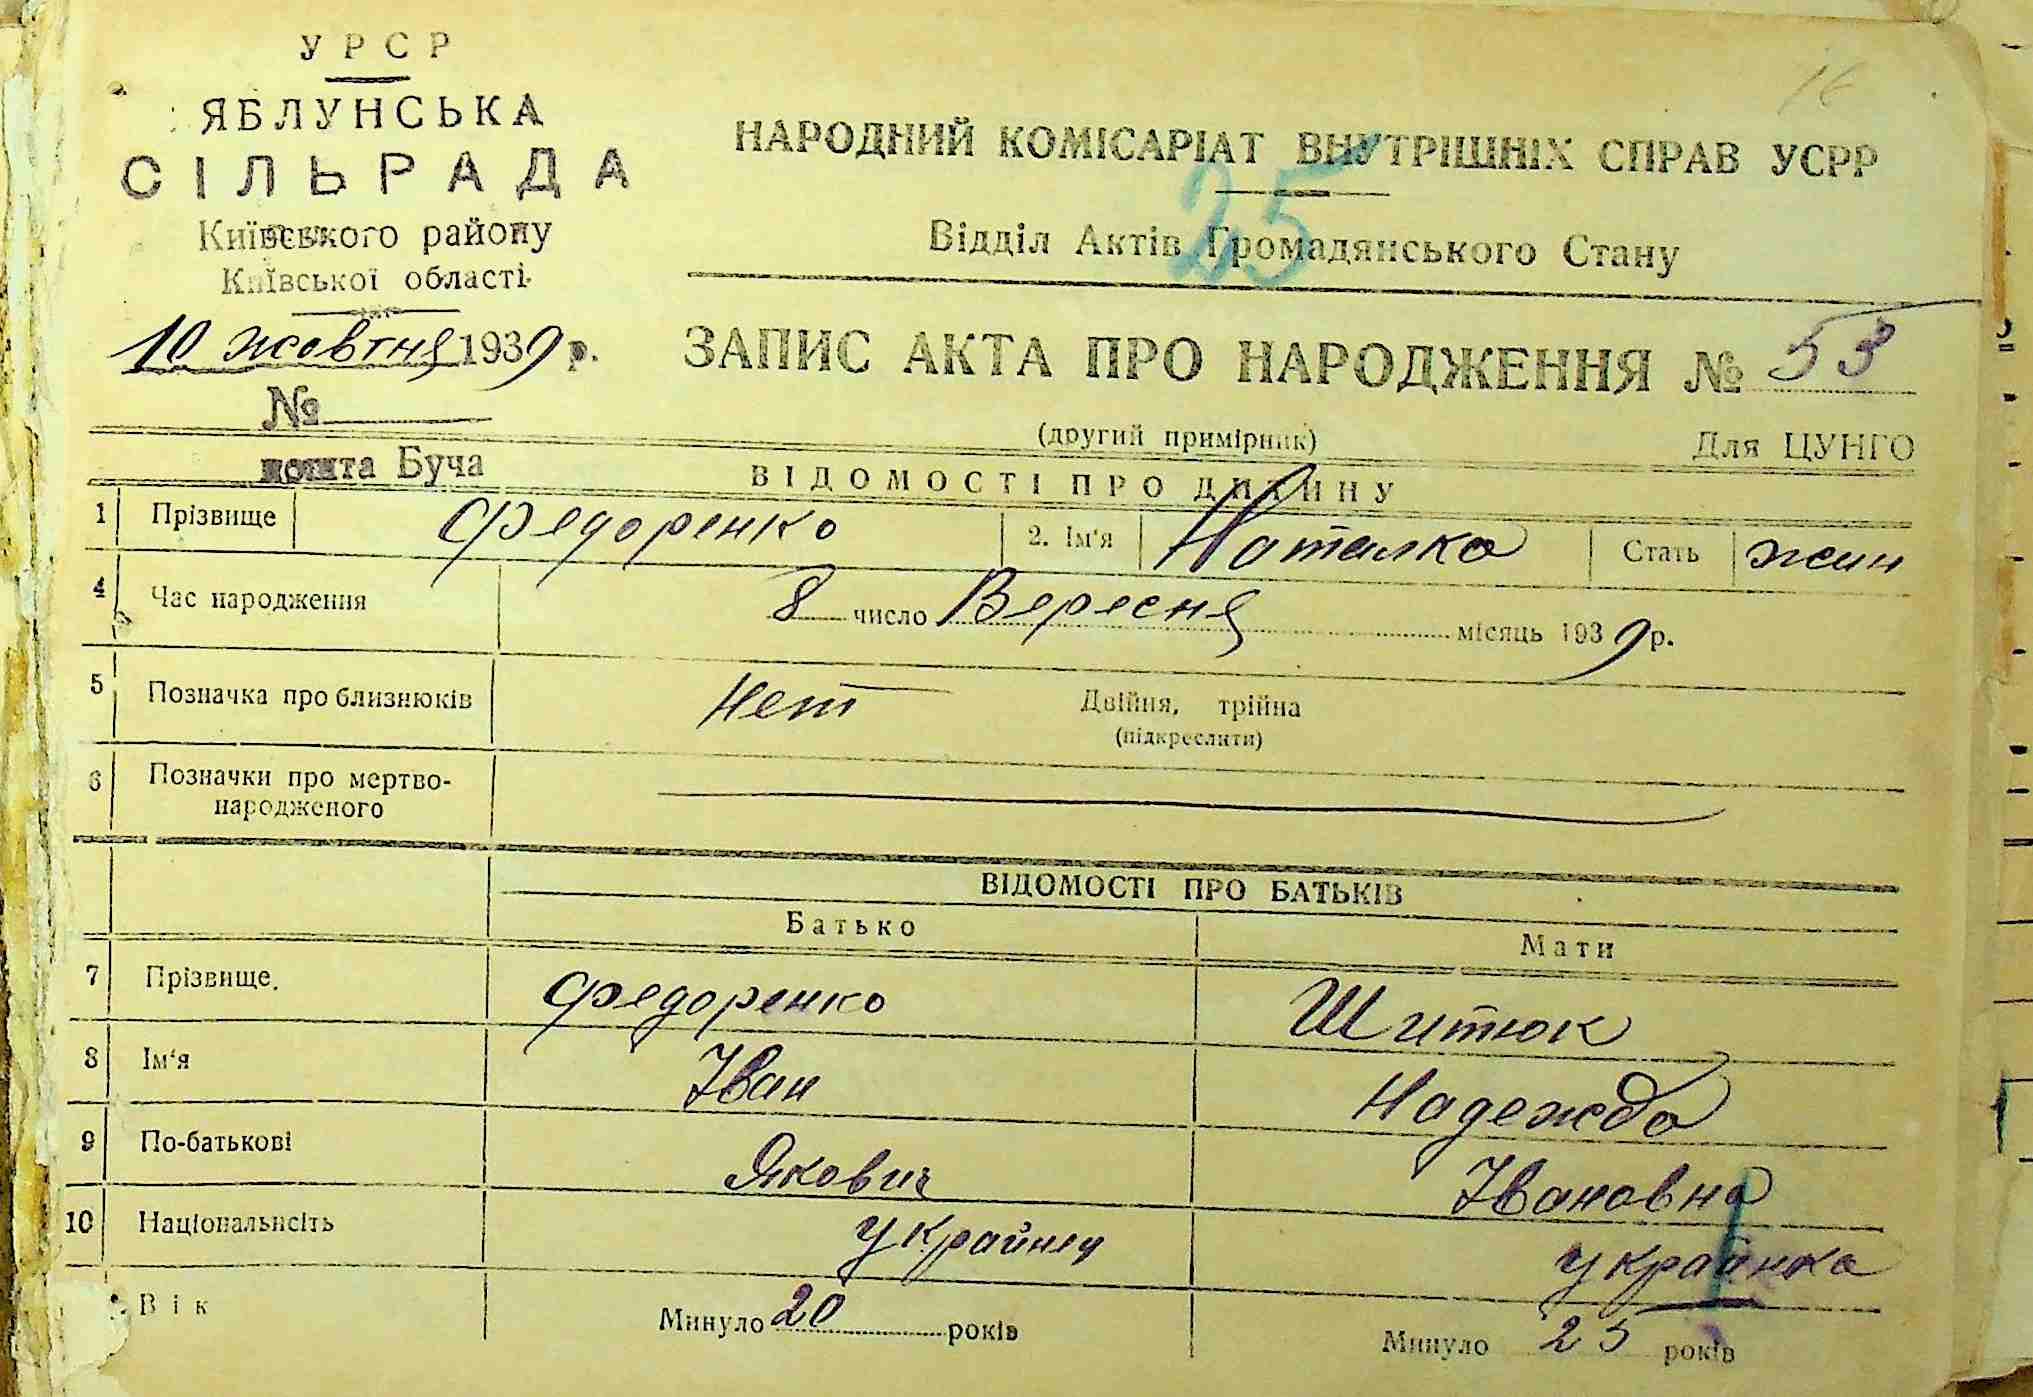 16
УРСР
ЯБЛУНСЬКА
СІЛЬРАДА
Київського району
Київської області
10 жовтня 1939 р.
№
пошта Буча
НАРОДНИЙ КОМІСАРІАТ ВНУТРІШНІХ СПРАВ УСРР
25
Відділ Актів Громадянського Стану
ЗАПИС АКТА ПРО НАРОДЖЕННЯ № 53
(другий примірник) Для ЦУНГО
ВІДОМОСТІ ПРО ДИТИНУ
1 Прізвище Федоренко 2. Ім'я Наталка Стать жин
4 Час народження 8 число Вересня місяць 1939 р.
5 Позначка про близнюків Нет Двійня, трійна
(підкреслити)
6 Позначки про мертво-
народженого
ВІДОМОСТІ ПРО БАТЬКІВ
Батько Мати
7 Прізвище. Федоренко Шитюк
8 Ім'я Іван Надежда
9 По-батькові Якович Івановна
10 Національність украйнец украйнка
Вік Минуло 20 років Минуло 25 років